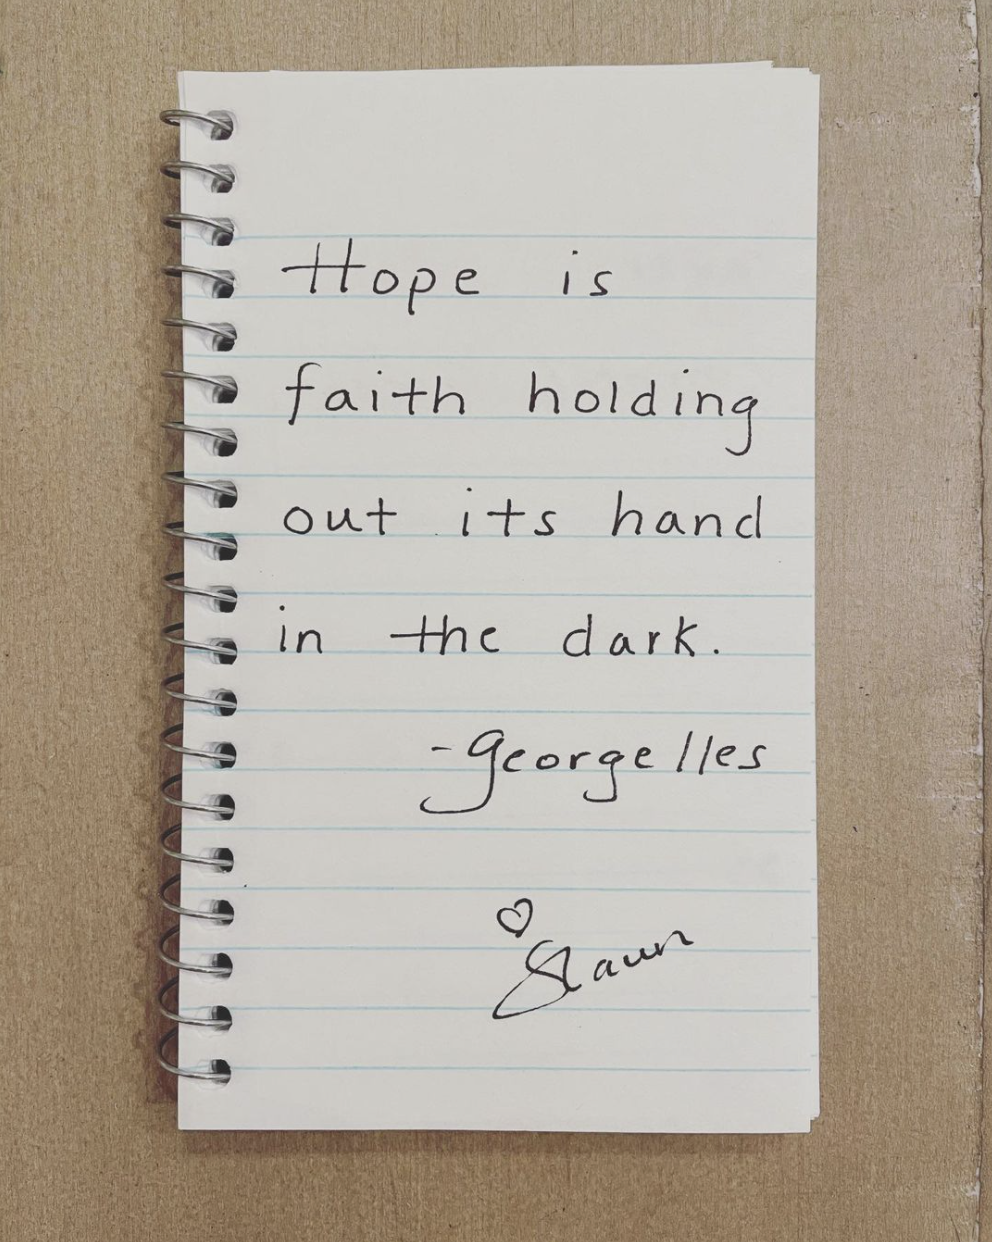 Hope is
faith holding
out its hand
in the dark.
-George Iles
♡
Shaun